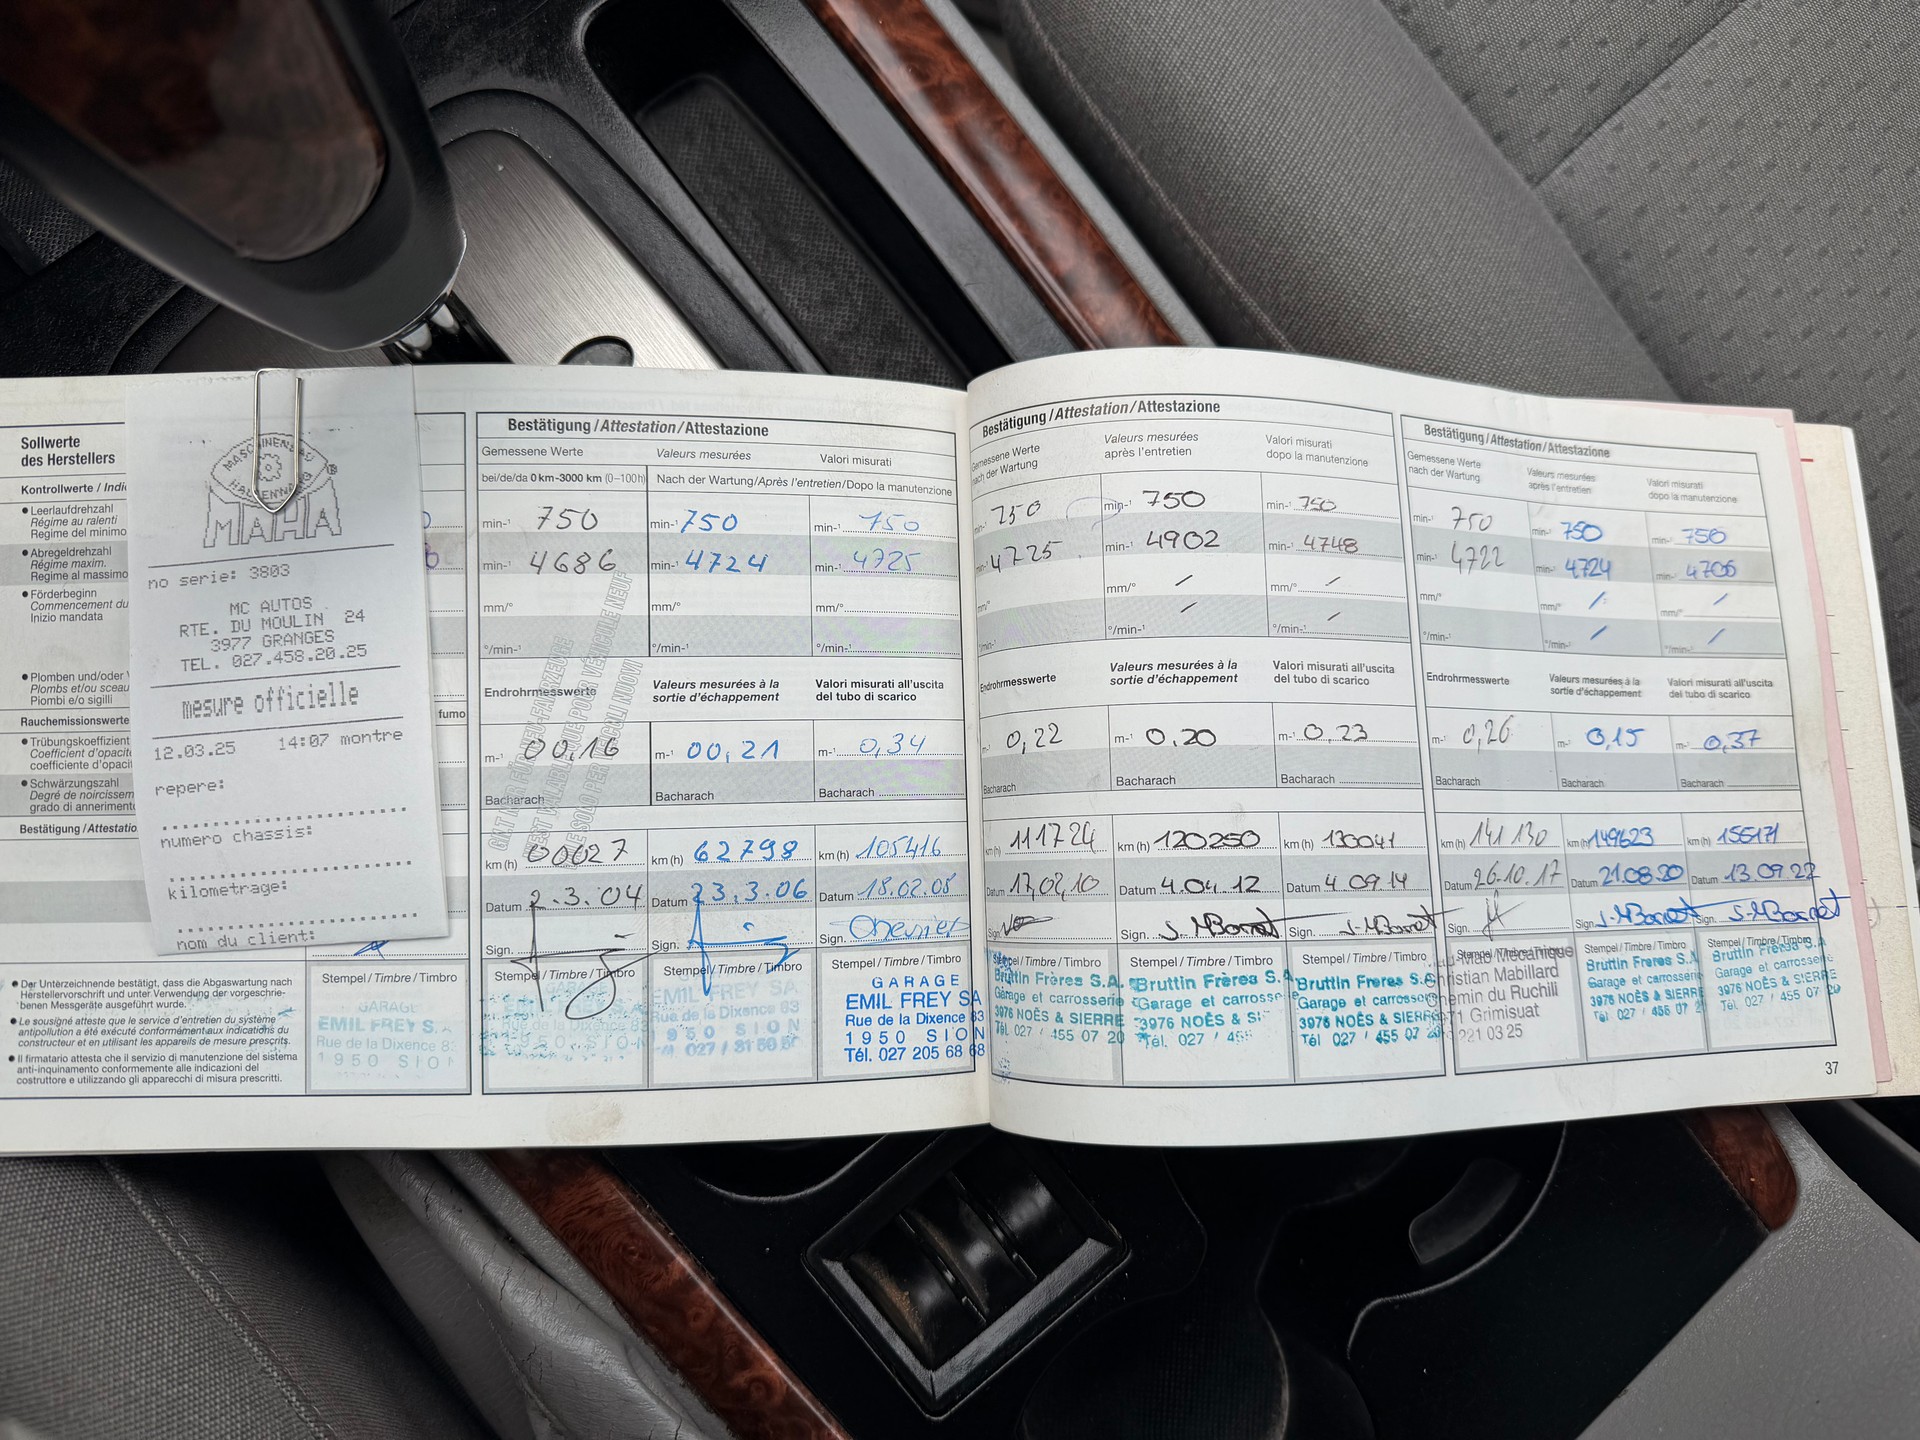 Sollwerte
des Herstellers
Kontrollwerte / Indi
Leerlaufdrehzahl
Régime au ralenti
Regime del minimo
Abregeldrehzahl
Régime maxim.
Regime al massimo
Förderbeginn
Commencement du
Inizio mandata
Plomben und/oder
Plombs et/ou sceau
Piombi e/o sigilli
Rauchemissionswerte
fumo
Trübungskoeffizient
Coefficient d'opacité
coefficiente d'opaci
Schwärzungszahl
Degré de noircissem
grado di annerimento
Bestätigung/Attestatio
MASCHINENBAU
HALDENWANG
MAHA
no serie: 3803
MC AUTOS
RTE. DU MOULIN 24
3977 GRANGES
TEL. 027.458.20.25
mesure officielle
12.03.25 14:07 montre
repere:
numero chassis:
kilometrage:
nom du client:
Der Unterzeichnende bestätigt, dass die Abgaswartung nach
Herstellervorschrift und unter Verwendung der vorgeschrie-
benen Messgeräte ausgeführt wurde.
Le sousigné atteste que le service d'entretien du système
antipollution a été exécuté conformément aux indications du
constructeur et en utilisant les appareils de mesure prescrits.
Il firmatario attesta che il servizio di manutenzione del sistema
anti-inquinamento conformemente alle indicazioni del
costruttore e utilizzando gli apparecchi di misura prescritti.
Stempel/Timbre/Timbro
GARAGE
EMIL FREY S.A.
Rue de la Dixence 83
1950 SION
Bestätigung/Attestation/Attestazione
Gemessene Werte Valeurs mesurées Valori misurati
bei/de/da 0 km-3000 km (0–100h) Nach der Wartung/Après l'entretien/Dopo la manutenzione
min-¹ 750 min-¹ 750 min-¹ 750
min-¹ 4686 min-¹ 4724 min-¹ 4725
mm/° mm/° mm/°
°/min-¹ °/min-¹ °/min-¹
Endrohrmesswerte Valeurs mesurées à la sortie d'échappement Valori misurati all'uscita del tubo di scarico
m-¹ 00,16 m-¹ 00,21 m-¹ 0,34
Bacharach Bacharach Bacharach
GILT NUR FÜR NEU-FAHRZEUGE
N'EST VALABLE QUE POUR VÉHICULE NEUF
VALE SOLO PER VEICOLI NUOVI
km(h) 00027 km(h) 62798 km(h) 105416
Datum 2.3.04 Datum 23.3.06 Datum 18.02.08
Sign. Sign. Sign. Chevrier
Stempel/Timbre/Timbro Stempel/Timbre/Timbro Stempel/Timbre/Timbro
EMIL FREY SA
Rue de la Dixence 83
1950 SION
GARAGE
EMIL FREY SA
Rue de la Dixence 83
1950 SION
Tél. 027 205 68 68
Bestätigung/Attestation/Attestazione
Gemessene Werte nach der Wartung Valeurs mesurées après l'entretien Valori misurati dopo la manutenzione
min-¹ 750 min-¹ 750 min-¹ 750
min-¹ 4725 min-¹ 4902 min-¹ 4748
mm/° mm/° / mm/° /
°/min-¹ °/min-¹ / °/min-¹ /
Endrohrmesswerte Valeurs mesurées à la sortie d'échappement Valori misurati all'uscita del tubo di scarico
m-¹ 0,22 m-¹ 0,20 m-¹ 0,23
Bacharach Bacharach Bacharach
km(h) 111724 km(h) 120250 km(h) 130041
Datum 17.02.10 Datum 4.04.12 Datum 4.09.14
Sign. Sign. Sign.
Stempel/Timbre/Timbro Stempel/Timbre/Timbro Stempel/Timbre/Timbro
Bruttin Frères S.A.
Garage et carrosserie
3976 NOËS & SIERRE
Tél. 027 / 455 07 20
Bruttin Frères S.A.
Garage et carrosserie
3976 NOËS & SI
Tél. 027 / 455
Bruttin Freres S.A.
Garage et carrosserie
3976 NOËS & SIERRE
Tél 027 / 455 07 20
Bestätigung/Attestation/Attestazione
Gemessene Werte nach der Wartung Valeurs mesurées après l'entretien Valori misurati dopo la manutenzione
min-¹ 750 min-¹ 750 min-¹ 750
min-¹ 4722 min-¹ 4724 min-¹ 4706
mm/° mm/° / mm/° /
°/min-¹ °/min-¹ / °/min-¹ /
Endrohrmesswerte Valeurs mesurées à la sortie d'échappement Valori misurati all'uscita del tubo di scarico
m-¹ 0,26 m-¹ 0,15 m-¹ 0,37
Bacharach Bacharach Bacharach
km(h) 141130 km(h) 149623 km(h) 156171
Datum 26.10.17 Datum 21.08.20 Datum 13.09.22
Sign. Sign. Sign.
Stempel/Timbre/Timbro Stempel/Timbre/Timbro Stempel/Timbre/Timbro
Mab Mécanique
Christian Mabillard
Chemin du Ruchili
71 Grimisuat
221 03 25
Bruttin Freres S.A.
Garage et carrosserie
3976 NOËS & SIERRE
Tél. 027 / 455 07 2
Bruttin Frères S.A.
Garage et carrosserie
3976 NOËS & SIERRE
Tél. 027 / 455 07 20
37